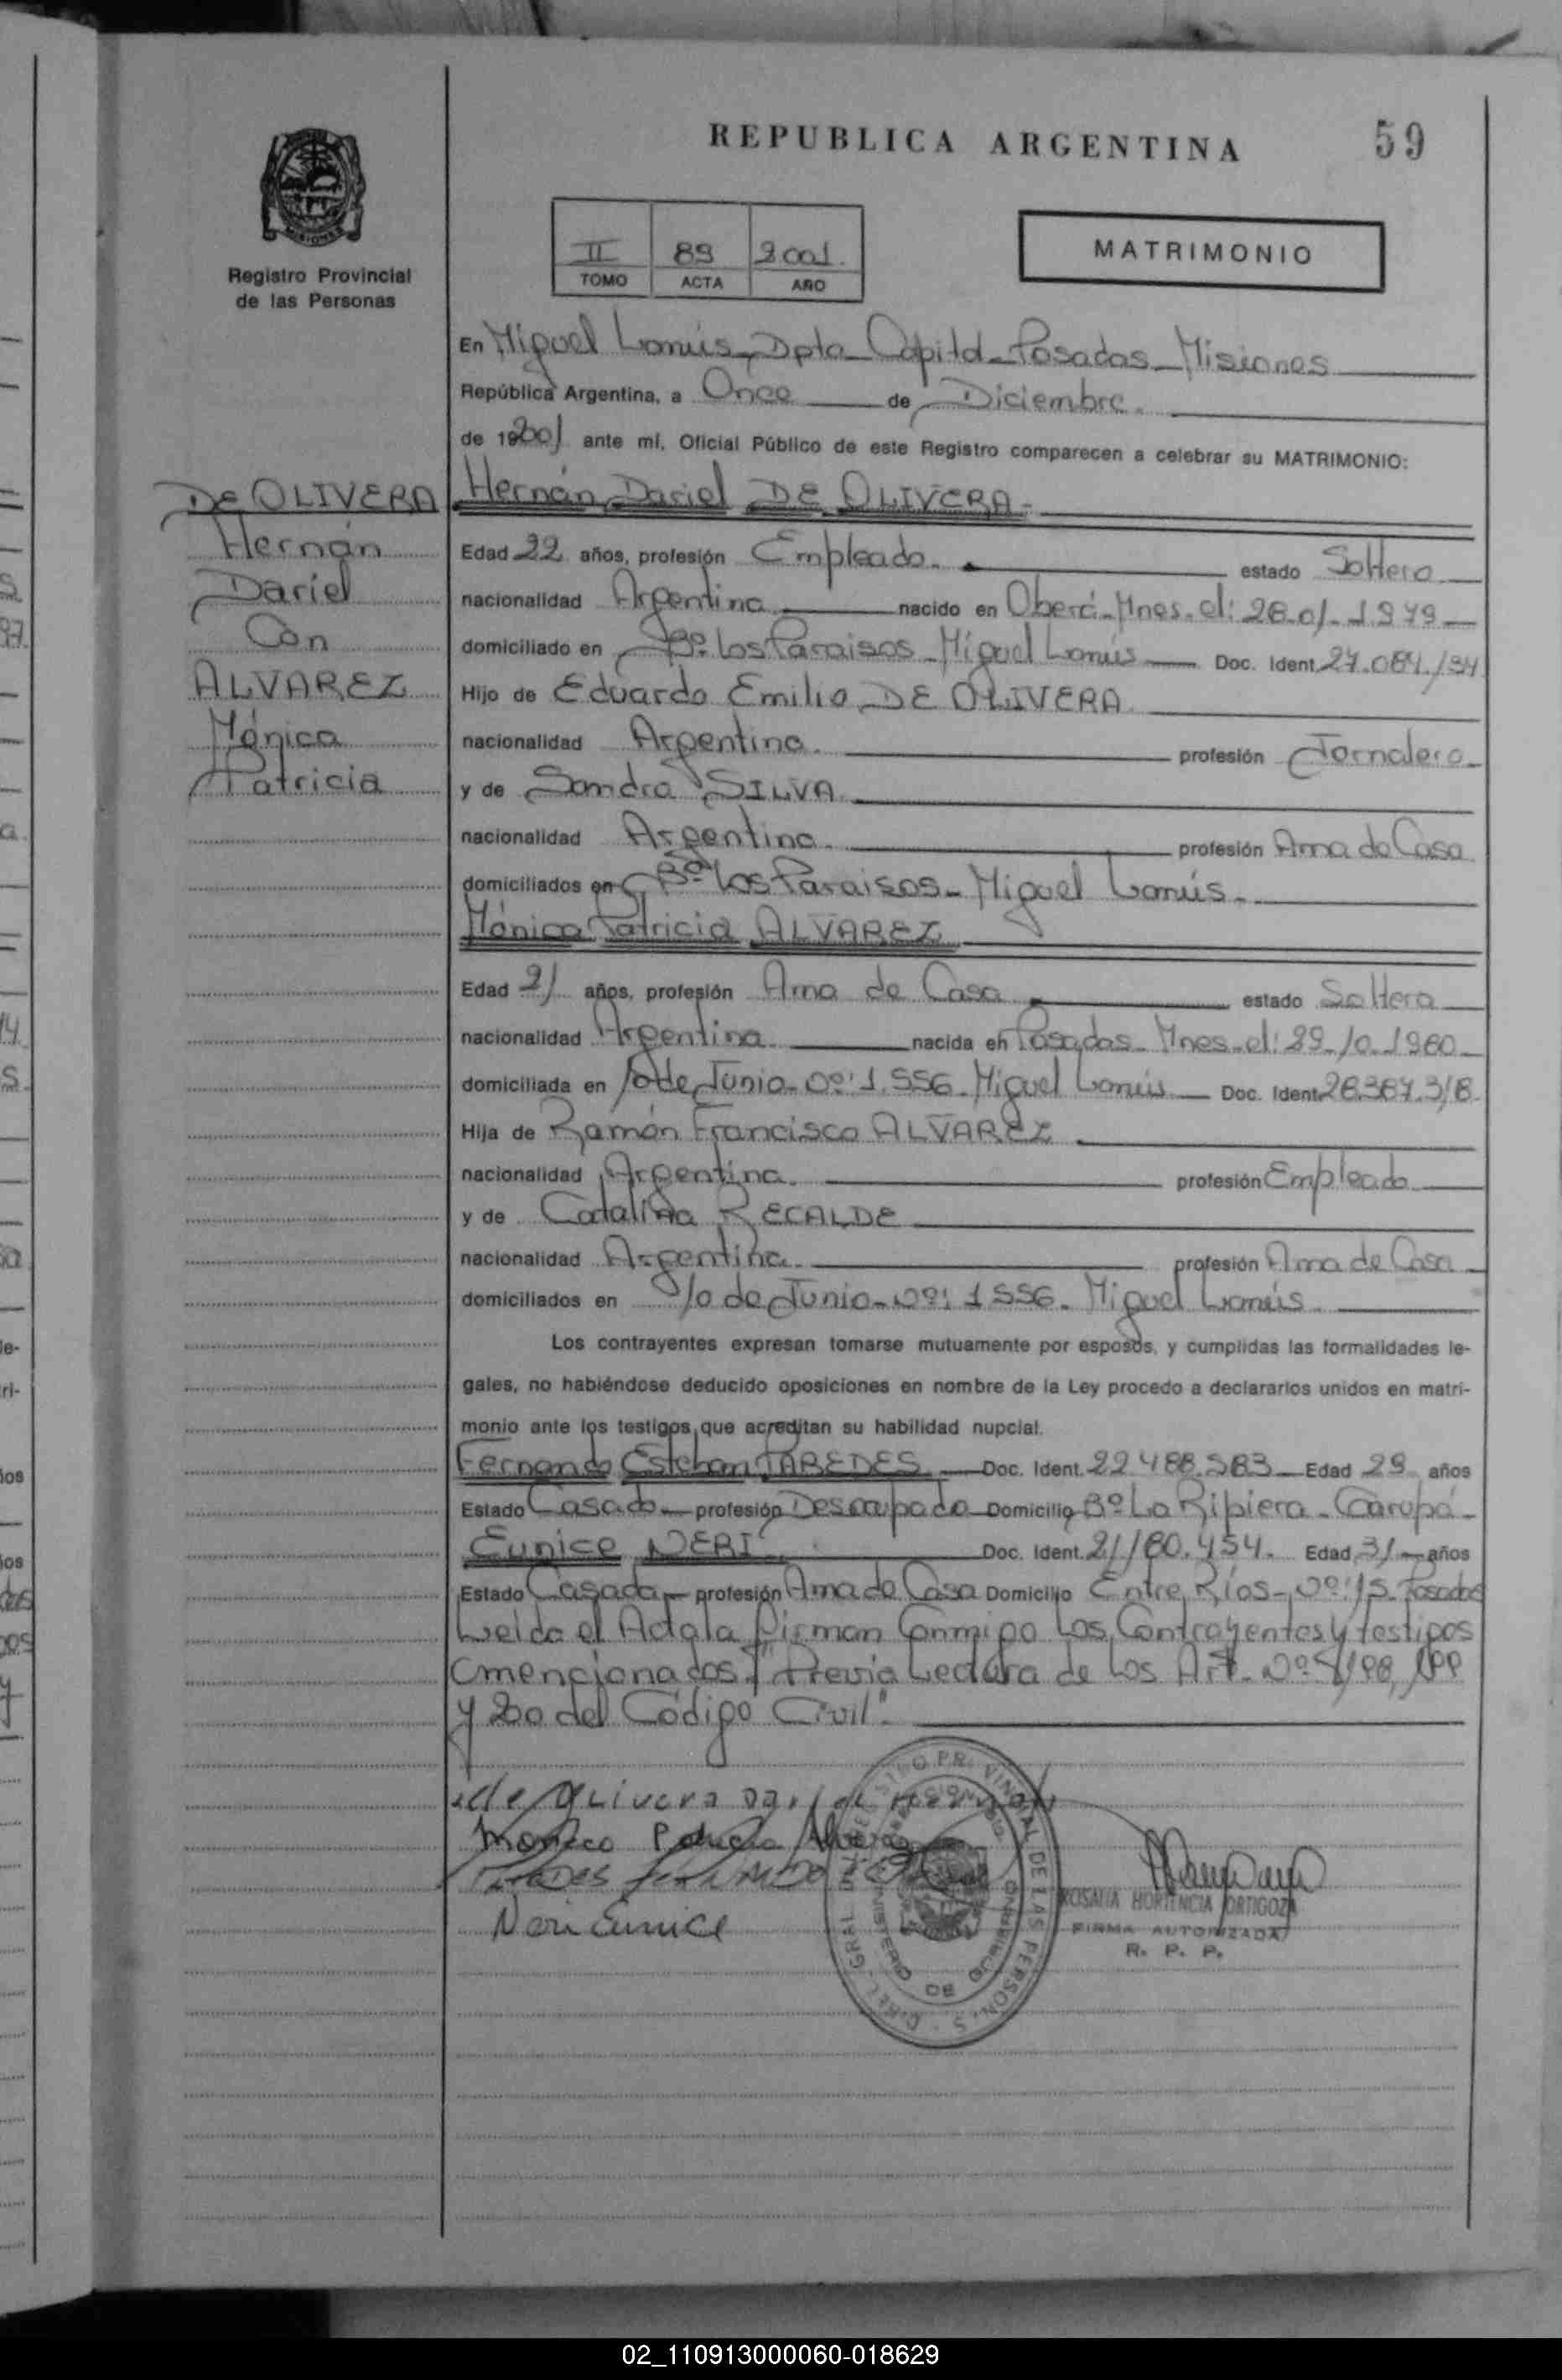 REPUBLICA ARGENTINA
59
MISIONES
Registro Provincial
de las Personas
II 89 2001.
TOMO ACTA AÑO
MATRIMONIO
En Miguel Lanús, Dpto Capital - Posadas - Misiones
República Argentina, a Once de Diciembre.
de 192001 ante mi, Oficial Público de este Registro comparecen a celebrar su MATRIMONIO:
DE OLIVERA
Hernán
Dariel
Con
ALVAREZ
Mónica
Patricia
Hernán Dariel DE OLIVERA -
Edad 22 años, profesión Empleado. estado Soltero
nacionalidad Argentina nacido en Oberá - Mnes. el: 28-01-1.979
domiciliado en Bº Los Paraisos - Miguel Lanús Doc. Ident. 27.084.134
Hijo de Eduardo Emilio DE OLIVERA
nacionalidad Argentina. profesión Jornalero
y de Sandra SILVA
nacionalidad Argentina. profesión Ama de Casa
domiciliados en Bº Los Paraisos - Miguel Lanús -
Mónica Patricia ALVAREZ
Edad 21 años, profesión Ama de Casa estado Soltera
nacionalidad Argentina nacida en Posadas - Mnes. el: 29-10-1980
domiciliada en 10 de Junio - nº: 1.556 - Miguel Lanús Doc. Ident. 28.387.318
Hija de Ramón Francisco ALVAREZ
nacionalidad Argentina. profesión Empleado
y de Catalina RECALDE
nacionalidad Argentina. profesión Ama de Casa
domiciliados en 10 de Junio - nº: 1556 - Miguel Lanús.
Los contrayentes expresan tomarse mutuamente por esposos, y cumplidas las formalidades le-
gales, no habiéndose deducido oposiciones en nombre de la Ley procedo a declararlos unidos en matri-
monio ante los testigos que acreditan su habilidad nupcial.
Fernando Esteban PAREDES Doc. Ident. 22.488.583 Edad 29 años
Estado Casado profesión Desocupado Domicilio Bº La Ribiera - Garupá -
Eunice NERI Doc. Ident. 21.180.454. Edad 31 años
Estado Casada profesión Ama de Casa Domicilio Entre Ríos - nº: 15. Posadas
Leida el Acta la firman Conmigo Los Contrayentes y testigos
mencionados. "Previa Lectura de Los Art. Nº 198, 199
y 200 del Código Civil".
Monica Patricia Alvarez
Neri Eunice
ROSALIA HORTENCIA ORTIGOZA
FIRMA AUTORIZADA
R. P. P.
02_110913000060-018629